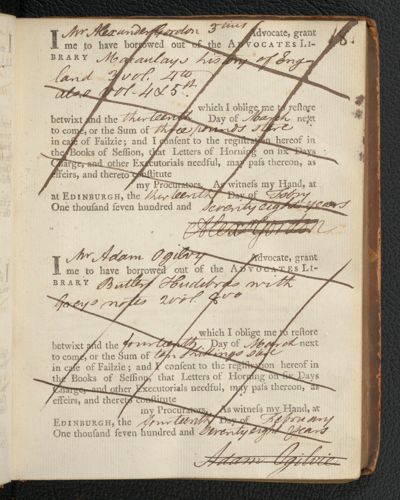 I Mr Alexander Gordon Advocate, grant
me to have borrowed out of the ADVOCATES LI-
BRARY Macaulays history of Eng-
land 3 vol. 4to
also vol 4 & 5th
which I oblige me to restore
betwixt and the thirteenth Day of March next
to come, or the Sum of three pounds
in case of Failzie; and I consent to the registration hereof in
the Books of Session, that Letters of Horning on six Days
Charge, and other Executorials needful, may pass thereon, as
effeirs, and thereto constitute
my Procurators. As witness my Hand, at
at EDINBURGH, the thirteenth Day of Febry
One thousand seven hundred and seventy eight years
Alexr Gordon
I Mr Adam Ogilvy Advocate, grant
me to have borrowed out of the ADVOCATES LI-
BRARY Butlers Hudibras with
Greys notes 2 vol. 8vo
which I oblige me to restore
betwixt and the fourteenth Day of March next
to come, or the Sum of ten shillings
in case of Failzie; and I consent to the registration hereof in
the Books of Session, that Letters of Horning on six Days
Charge, and other Executorials needful, may pass thereon, as
effeirs, and thereto constitute
my Procurators. As witness my Hand, at
EDINBURGH, the fourteenth Day of February
One thousand seven hundred and seventy eight years
Adam Ogilvie